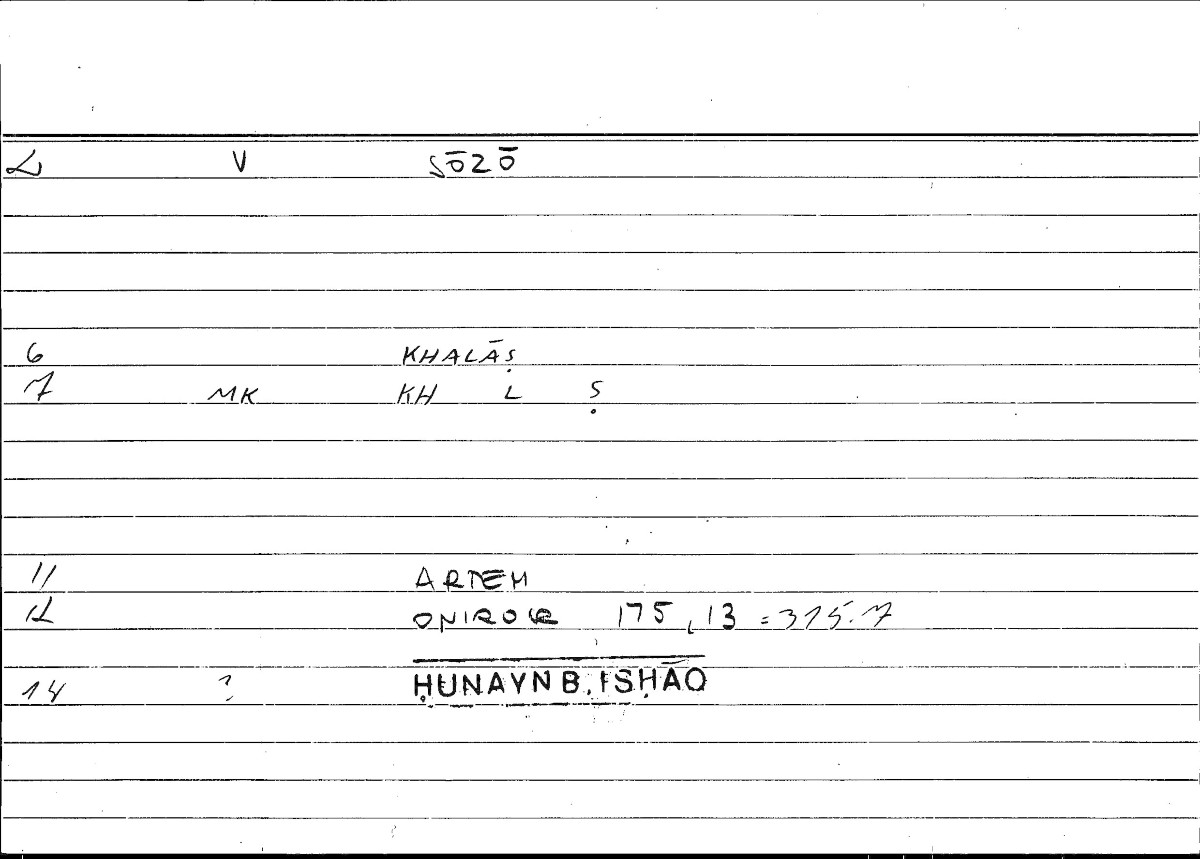 2 V SŌZŌ
6 KHALĀṢ
7 MK KH L Ṣ
11 ARTEM
12 ONIROKR 175,13 = 315.7
14 ? ḤUNAYN B. ISḤĀQ